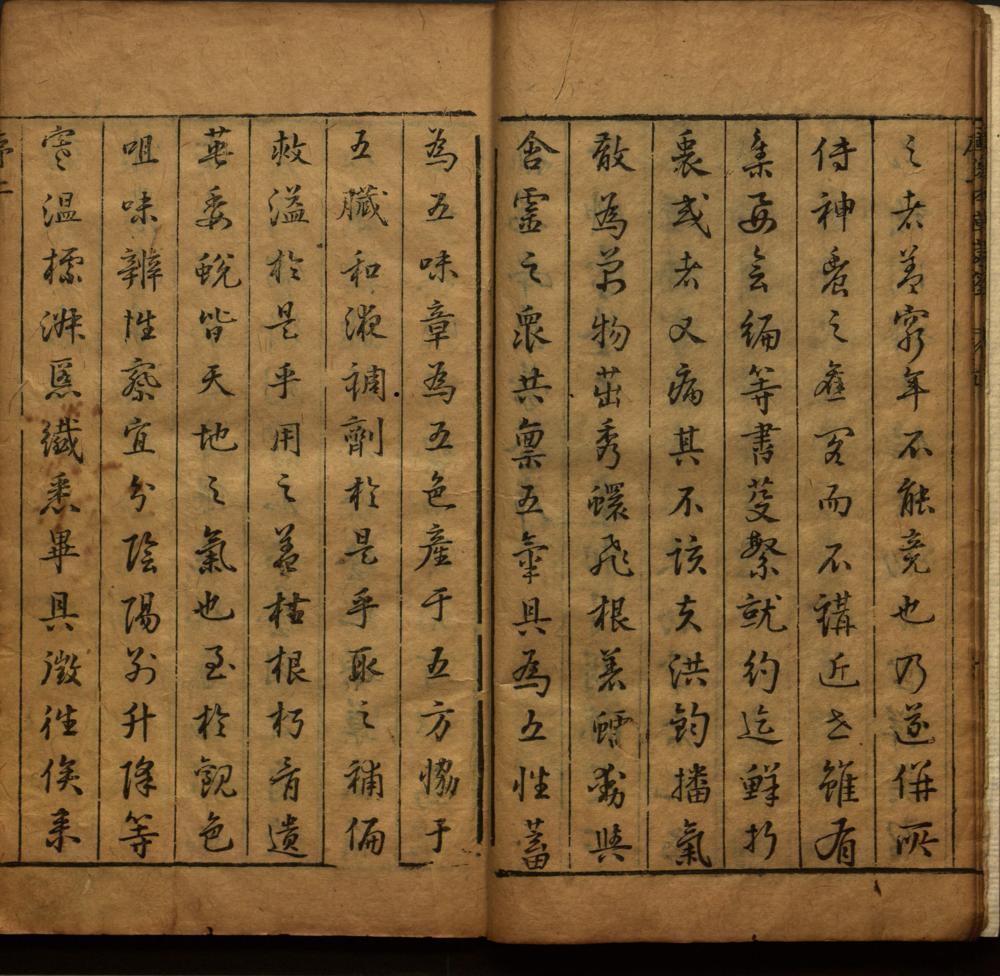 之者蓋窮年不能竟也乃遂併所
侍神農之舊罔而不講近世雖有
集要會編等書芟繁就約迄鮮折
衷或者又病其不該夫洪鈞播氣
散為萬物茁秀蠉飛根荄蠕動與
含靈之眾共稟五氣具為五性蓄
為五味章為五色產于五方協于
五臟和液調劑於是乎取之補偏
救溢於是乎用之蓋枯根朽骨遺
英委蛻皆天地之氣也至於觀色
咀味辨性察宜分陰陽別升降等
寒溫標淑慝纖悉畢具徵往俟來
序二